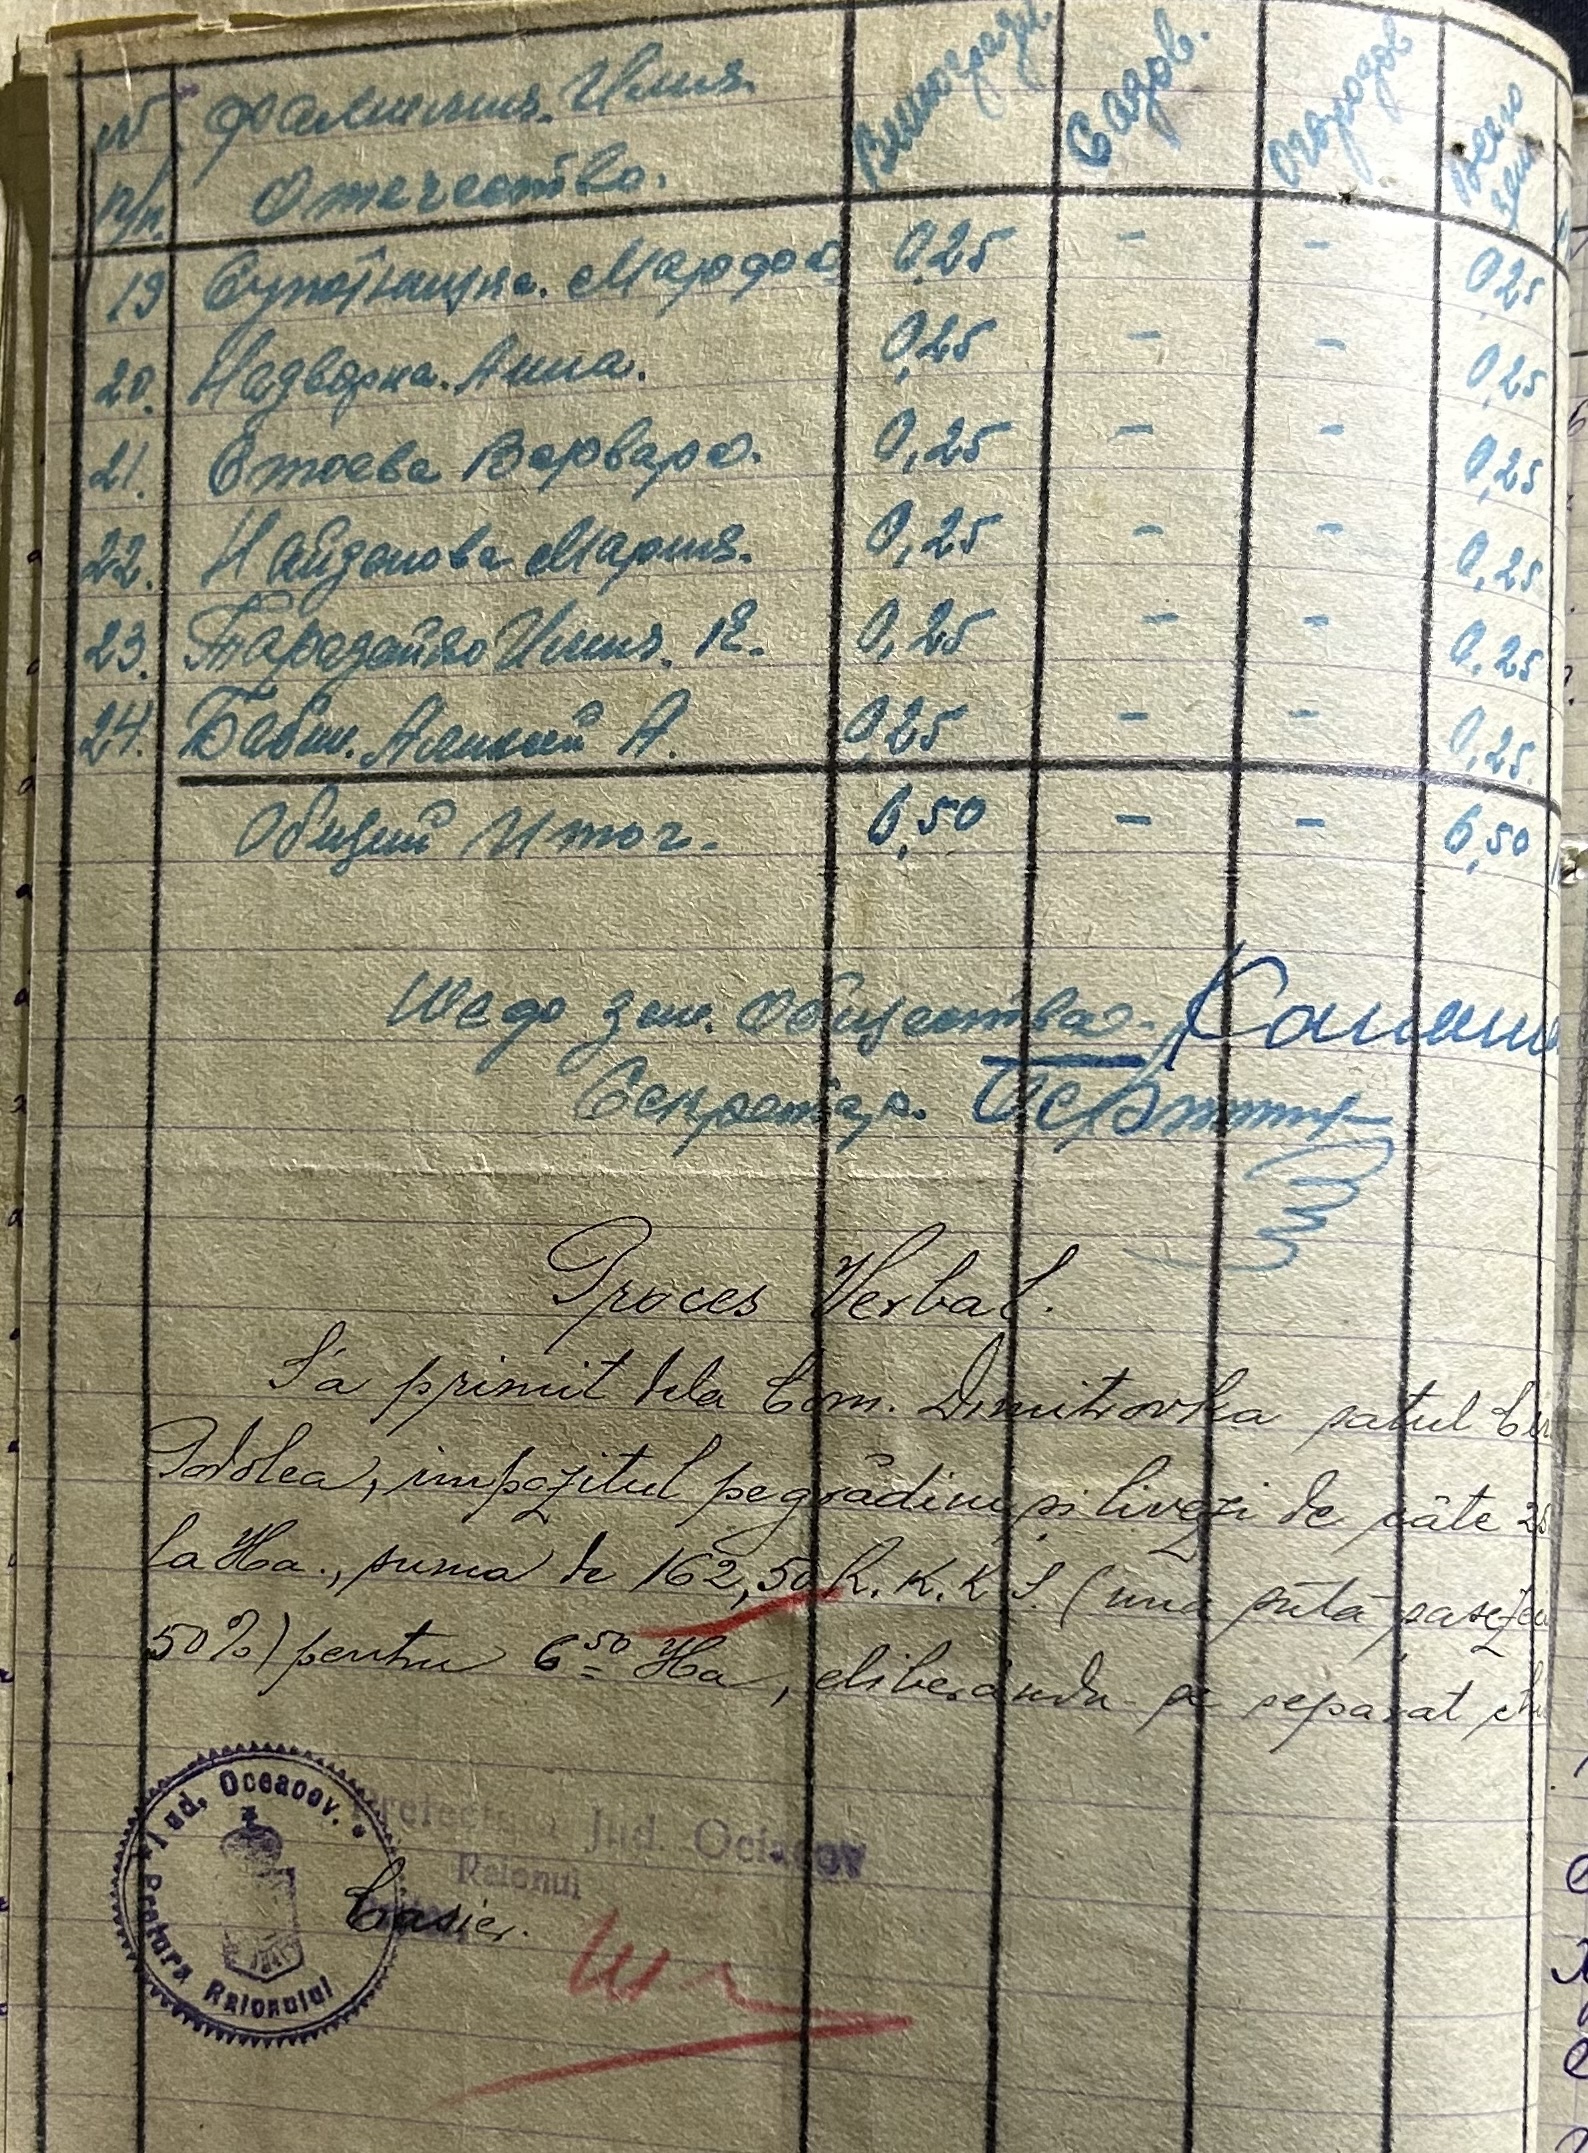 № Фамилия. Имя. Виноградн. Садов. Огородов Всего
п/п. Отечество. зем.
19 Марфа 0,25 - - 0,25
20. Надворна. Анна. 0,25 - - 0,25
21. Стоева Варвара. 0,25 - - 0,25
22. Найденова Мария. 0,25 - - 0,25
23. Илия. К. 0,25 - - 0,25
24. Бабин. А. 0,25 - - 0,25.
Общий Итог. 6,50 - - 6,50
зем. Общества.
Секретар.
Proces Verbal.
S'a primit dela Com. Dimitrovka satul
Podolea, impozitul pe grădini și livezi de câte 25
la Ha., suma de 162,50 R.K.K.S. (una sută
50%) pentru 6 50 Ha, eliberându-se separat
Jud. Oceacov.
Pretura Raionului
Prefectura Jud. Ociacov
Raionul
Casier.